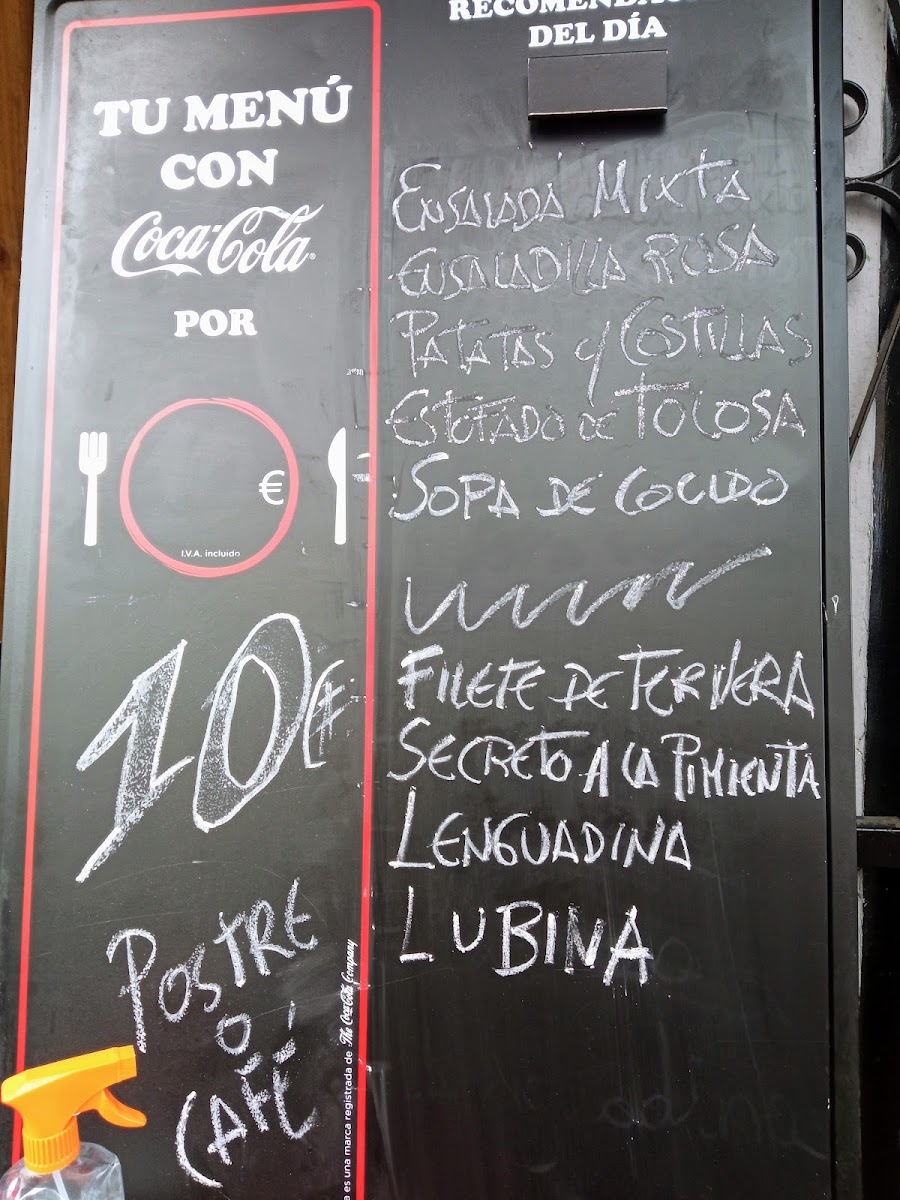 TU MENÚ
CON
Coca-Cola
POR
€
I.V.A. incluido
10€
POSTRE
O
CAFÉ
a es una marca registrada de The Coca-Cola Company
DEL DÍA
ENSALADA MIXTA
ENSALADILLA RUSA
PATATAS y COSTILLAS
ESTOFADO DE TOLOSA
SOPA DE COCIDO
FILETE DE TERNERA
SECRETO A LA PIMIENTA
LENGUADINA
LUBINA